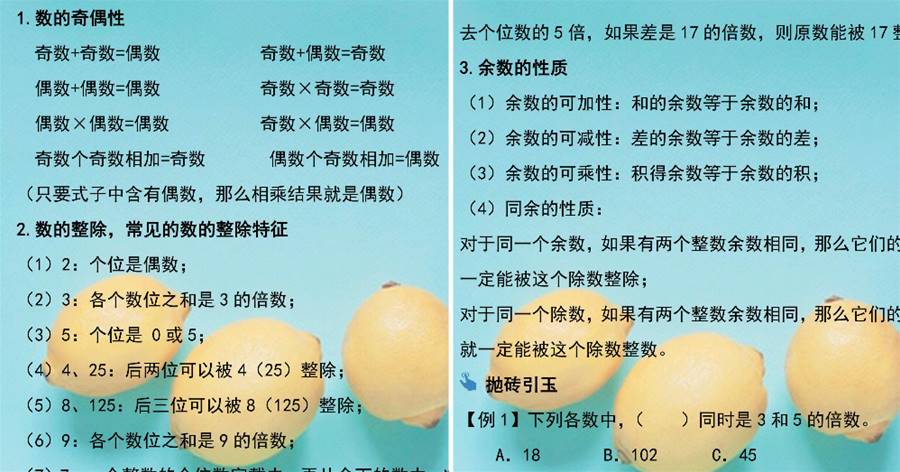 1.数的奇偶性
奇数+奇数=偶数 奇数+偶数=奇数
偶数+偶数=偶数 奇数×奇数=奇数
偶数×偶数=偶数 奇数×偶数=偶数
奇数个奇数相加=奇数 偶数个奇数相加=偶数
（只要式子中含有偶数，那么相乘结果就是偶数）
2.数的整除，常见的数的整除特征
（1）2：个位是偶数；
（2）3：各个数位之和是3的倍数；
（3）5：个位是 0或5；
（4）4、25：后两位可以被4（25）整除；
（5）8、125：后三位可以被8（125）整除；
（6）9：各个数位之和是9的倍数；
去个位数的5倍，如果差是17的倍数，则原数能被17整
3.余数的性质
（1）余数的可加性：和的余数等于余数的和；
（2）余数的可减性：差的余数等于余数的差；
（3）余数的可乘性：积得余数等于余数的积；
（4）同余的性质：
对于同一个余数，如果有两个整数余数相同，那么它们的
一定能被这个除数整除；
对于同一个除数，如果有两个整数余数相同，那么它们的
就一定能被这个除数整数。
抛砖引玉
【例1】下列各数中，（ ）同时是3和5的倍数。
A．18 B．102 C．45